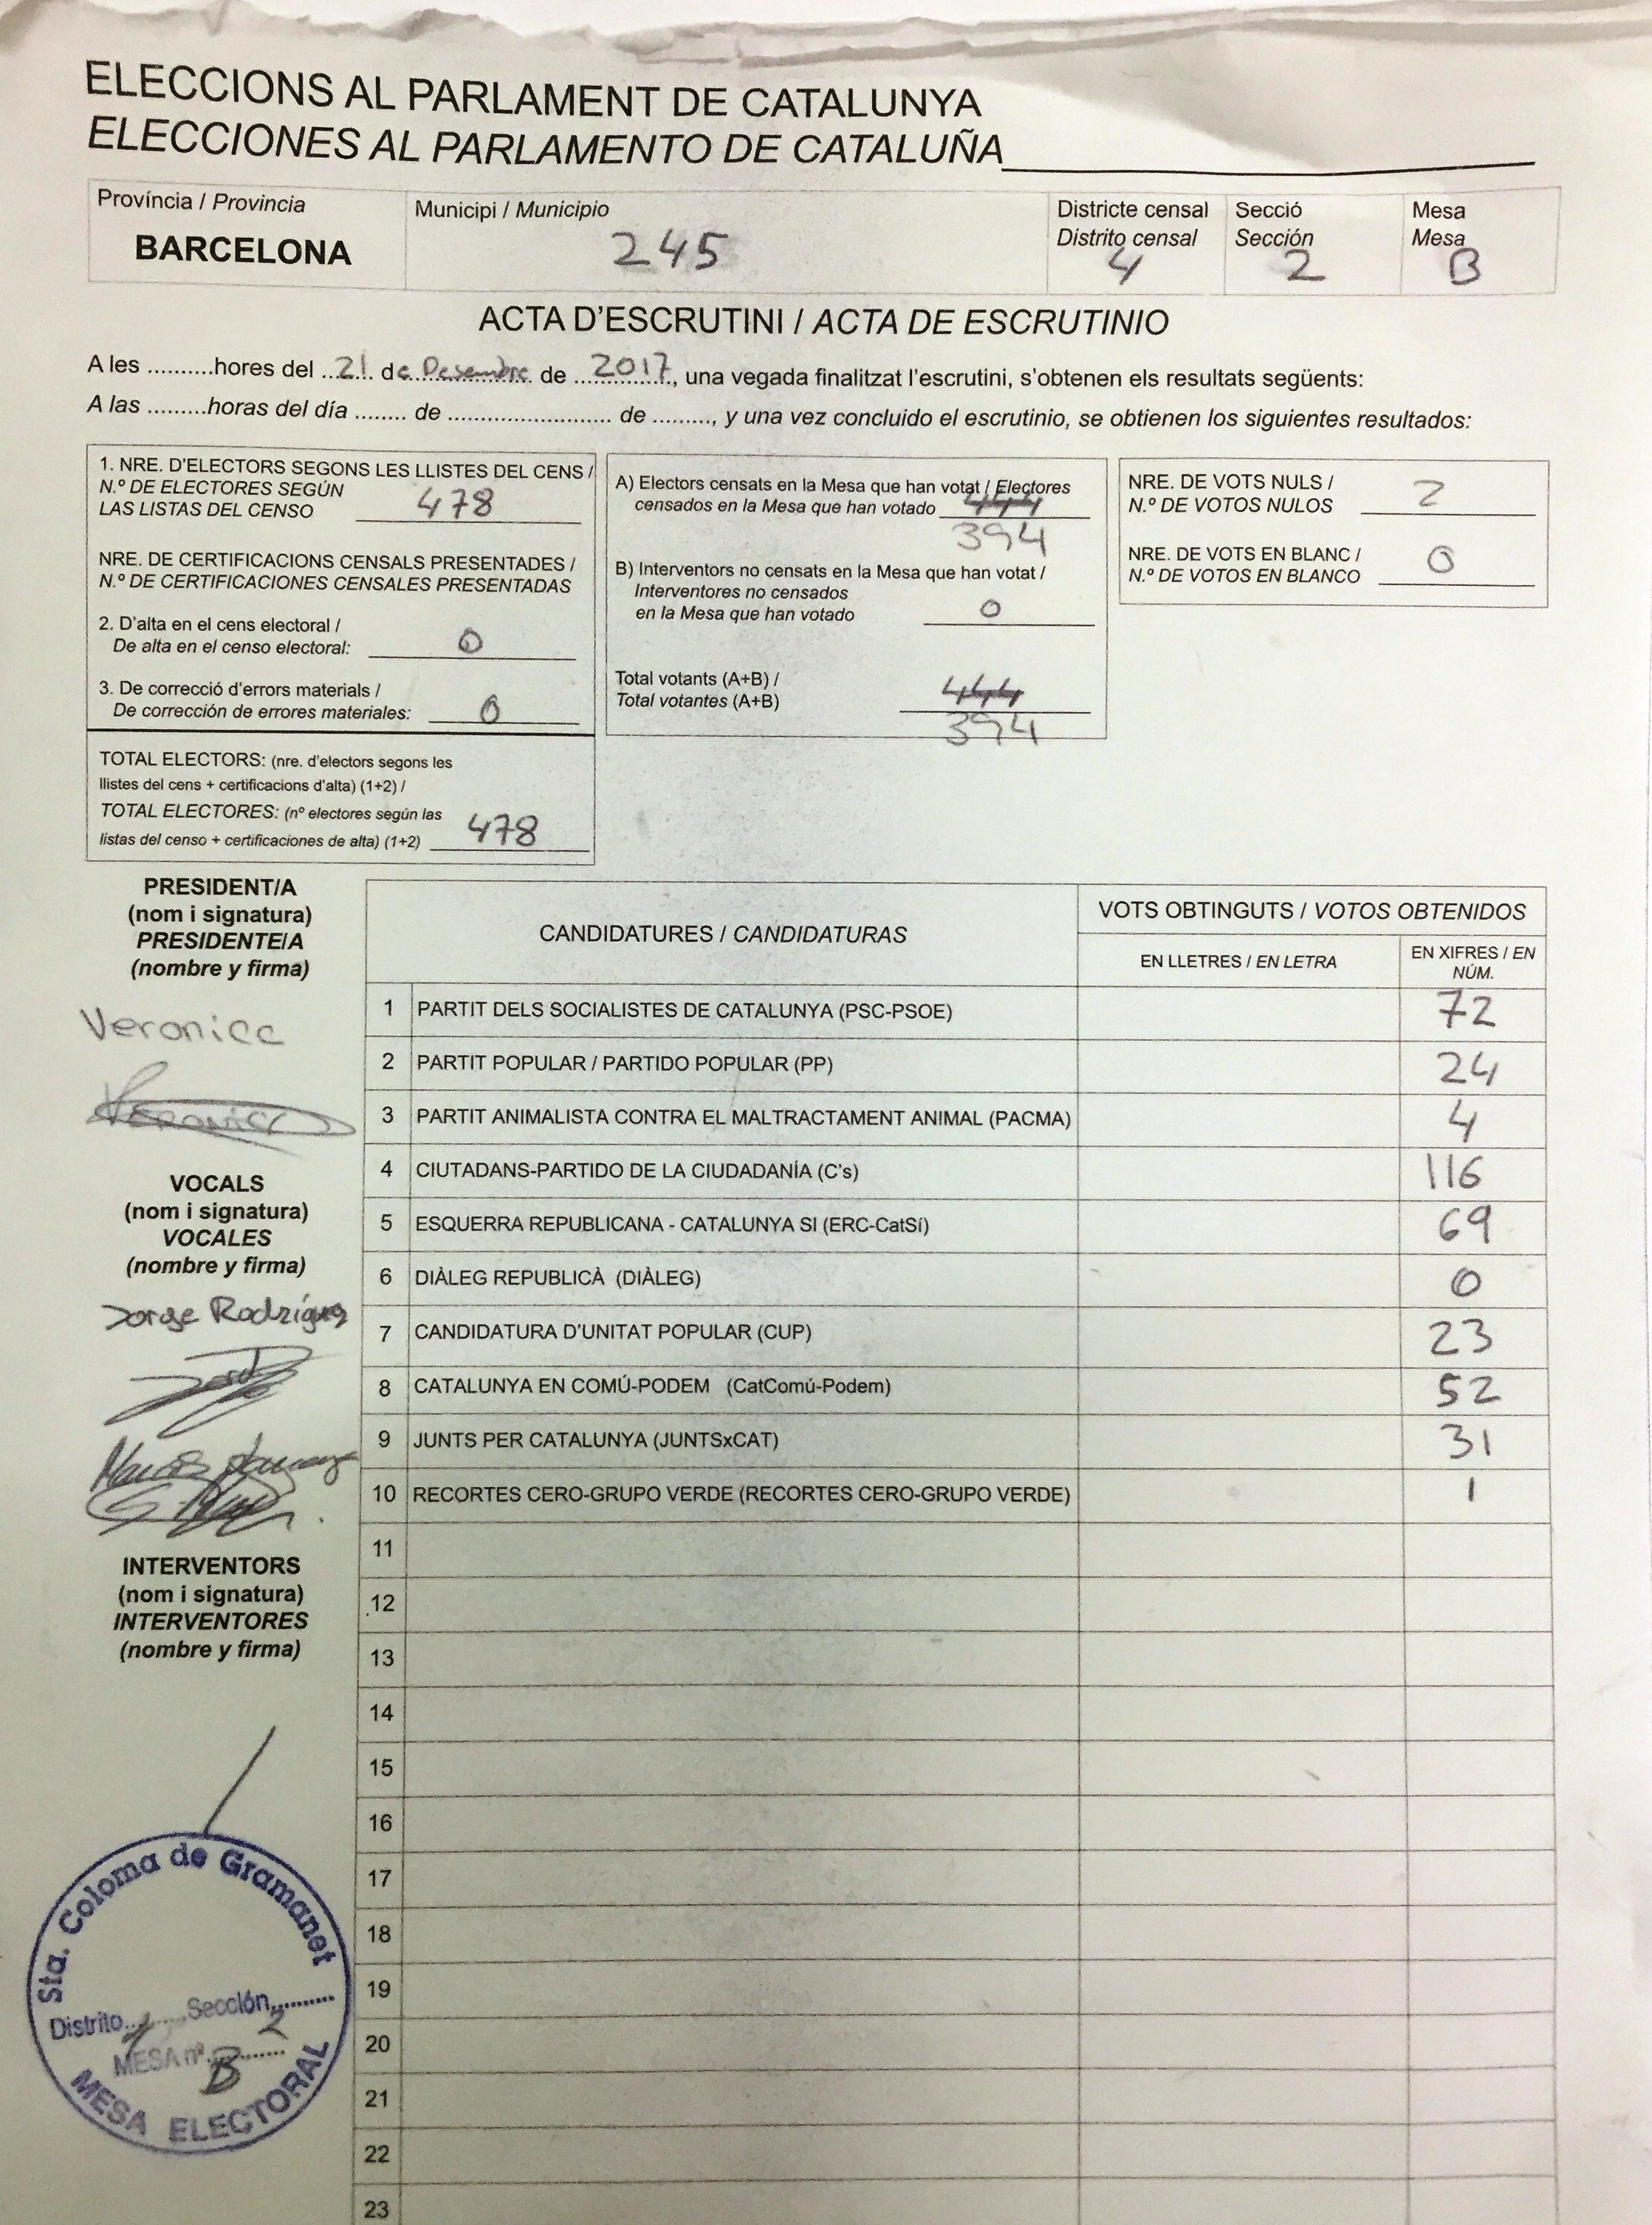 ELECCIONS AL PARLAMENT DE CATALUNYA
ELECCIONES AL PARLAMENTO DE CATALUÑA
Província / Provincia
BARCELONA
Municipi / Municipio
245
Districte censal
Distrito censal
4
Secció
Sección
2
Mesa
Mesa
B
ACTA D'ESCRUTINI / ACTA DE ESCRUTINIO
A les .........hores del ..21.. de Desembre. de ..2017.., una vegada finalitzat l'escrutini, s'obtenen els resultats següents:
A las .........horas del día ........ de ......................... de ........., y una vez concluido el escrutinio, se obtienen los siguientes resultados:
1. NRE. D'ELECTORS SEGONS LES LLISTES DEL CENS /
N.º DE ELECTORES SEGÚN
LAS LISTAS DEL CENSO 478
NRE. DE CERTIFICACIONS CENSALS PRESENTADES /
N.º DE CERTIFICACIONES CENSALES PRESENTADAS
2. D'alta en el cens electoral /
De alta en el censo electoral: 0
3. De correcció d'errors materials /
De corrección de errores materiales: 0
TOTAL ELECTORS: (nre. d'electors segons les
llistes del cens + certificacions d'alta) (1+2) /
TOTAL ELECTORES: (nº electores según las
listas del censo + certificaciones de alta) (1+2) 478
A) Electors censats en la Mesa que han votat / Electores
censados en la Mesa que han votado 444
394
B) Interventors no censats en la Mesa que han votat /
Interventores no censados
en la Mesa que han votado 0
Total votants (A+B) /
Total votantes (A+B) 444
394
NRE. DE VOTS NULS /
N.º DE VOTOS NULOS 2
NRE. DE VOTS EN BLANC /
N.º DE VOTOS EN BLANCO 0
PRESIDENT/A
(nom i signatura)
PRESIDENTE/A
(nombre y firma)
Veronica
Veronica
VOCALS
(nom i signatura)
VOCALES
(nombre y firma)
Jorge Rodríguez
INTERVENTORS
(nom i signatura)
INTERVENTORES
(nombre y firma)
CANDIDATURES / CANDIDATURAS
VOTS OBTINGUTS / VOTOS OBTENIDOS
EN LLETRES / EN LETRA
EN XIFRES / EN
NÚM.
1 PARTIT DELS SOCIALISTES DE CATALUNYA (PSC-PSOE) 72
2 PARTIT POPULAR / PARTIDO POPULAR (PP) 24
3 PARTIT ANIMALISTA CONTRA EL MALTRACTAMENT ANIMAL (PACMA) 4
4 CIUTADANS-PARTIDO DE LA CIUDADANÍA (C's) 116
5 ESQUERRA REPUBLICANA - CATALUNYA SI (ERC-CatSí) 69
6 DIÀLEG REPUBLICÀ (DIÀLEG) 0
7 CANDIDATURA D'UNITAT POPULAR (CUP) 23
8 CATALUNYA EN COMÚ-PODEM (CatComú-Podem) 52
9 JUNTS PER CATALUNYA (JUNTSxCAT) 31
10 RECORTES CERO-GRUPO VERDE (RECORTES CERO-GRUPO VERDE) 1
11
12
13
14
15
16
17
18
19
20
21
22
23
Sta. Coloma de Gramanet
Distrito.........Sección..........
2
MESA nº...........
B
MESA ELECTORAL